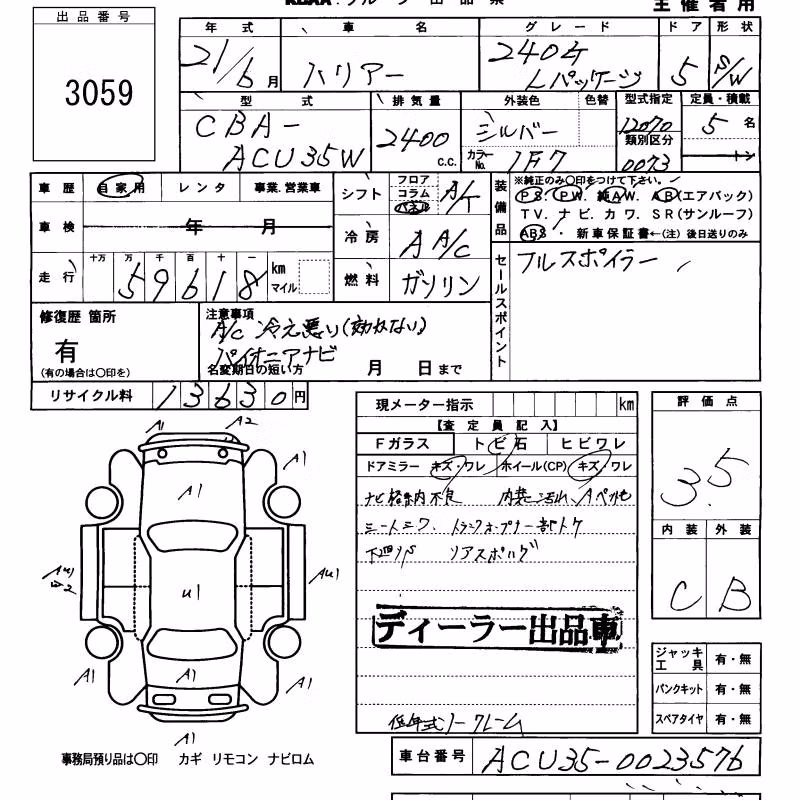 主催者用
出品番号
3059
年式 車名 グレード ドア 形状
21/6月 ハリアー 240G Lパッケージ 5 S/W
型式 排気量 外装色 色替 型式指定 定員・積載
CBA-ACU35W 2400 c.c. シルバー カラーNo. 1F7 12070 類別区分 0073 5名 トン
車歴 自家用 レンタ 事業、営業車
シフト フロア コラム パネル A/T
装備品 ※純正のみ〇印をつけて下さい。
PS. PW. 純AW. AB(エアバック)
TV. ナビ. カワ. SR(サンルーフ)
ABS・ 新車保証書←(注) 後日送りのみ
車検 年 月
冷房 AA/C
走行 十万 万 千 百 十 一 59618 km マイル
燃料 ガソリン
セールスポイント フルスポイラー
修復歴 箇所 有 (有の場合は〇印を)
注意事項
A/C 冷え悪い(効かない)
パイオニアナビ
名変期日の短い方 月 日まで
リサイクル料 13630円
現メーター指示 km
評価点
3.5
【査定員記入】
Fガラス トビ石 ヒビワレ
ドアミラー キズ・ワレ ホイール(CP) キズ・ワレ
内装
シートシワ、
下廻りS
内装 外装
C B
ディーラー出品車
ジャッキ工具 有・無
パンクキット 有・無
スペアタイヤ 有・無
低年式ノークレーム
A1 A2
A1 A1
A1
U1
AU1
A1 A1 A1
A1
事務局預り品は〇印 カギ リモコン ナビロム
車台番号 ACU35-0023576